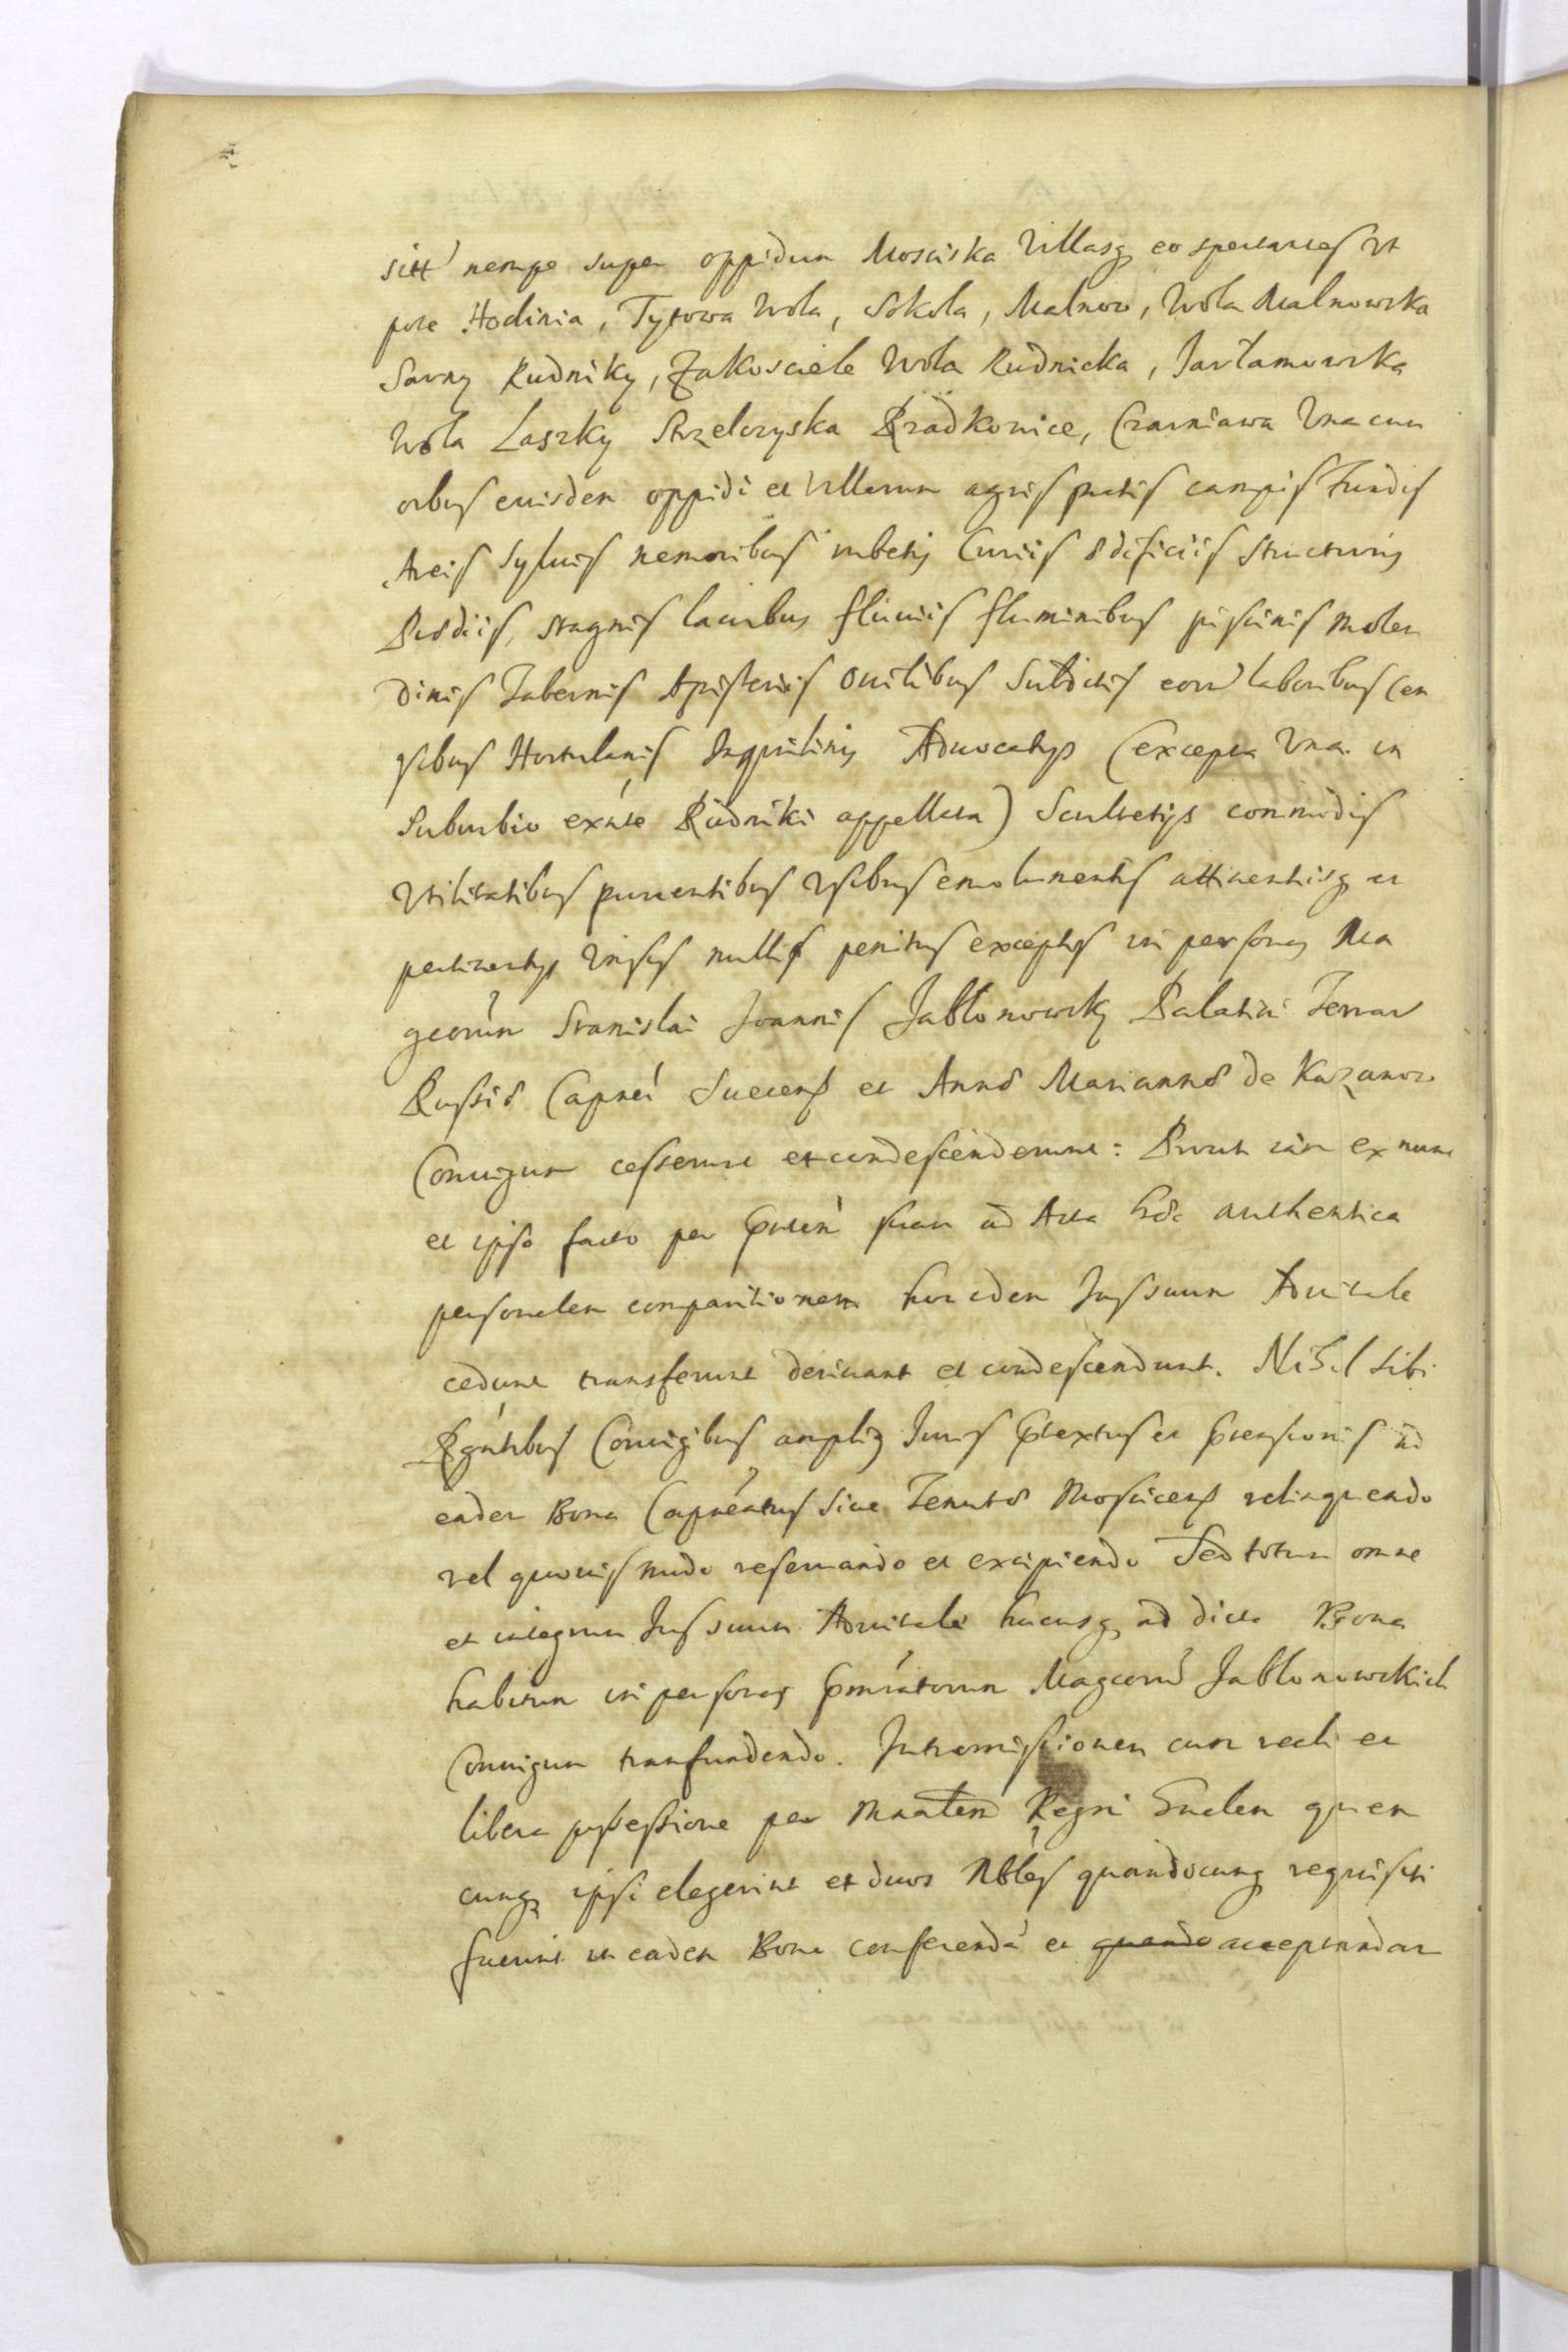 sitt nempe super oppidum Mosciska Villasq eo spectantes Vt
pote Hodinia, Tytowa Wola, Sokola, Malnow, Wola Malnowska
Sarny Rudniky, Zakosciele Wola Rudnicka, Jarłamowska
Wola Laszky Strzelczyska Rzadkowice, Czarniawa Vna cum
orbus euisdem oppidi et Villarum agris pratis campis Fundis
Areis Syluis nemoribus rubetis Curiis ædificiis structuris
Prædiis, stagnis lacubus fluuiis fluminibus piscinis molen
dinis Tabernis Apisteriis Ouilibus Subditis eorum laboribus Cen
sibus Hortulanis Inquilinis Aduocatys (excepta Vna in
Suburbio exnte Rudniki appellata) Scultetys commodis
Vtilitatibus prouentibus Vsibus emolumentis attinentisq et
pertinentys Vnisis nullis penitus exceptis in personas Ma
gcorum Stanislai Joannis Jabłonowsky Palatini Terrar
Russiæ Capnei Suecens et Annæ Mariannæ de Kazanow
Coniugum cesserunt et condescenderunt: Prout iam ex nunc
et ipso facto per Pntem suam ad Acta hæc authentica
personalem comparitionem hoc idem Jus suum Aduitale
cedunt transferunt deriuant et condescendunt. Nihil sibi
Rgntibus Coniugibus ampliq Juris Prætextus et Prætensionis ad
eadem Bona Capneatus siue Tenutæ Moscicens relinquendo
vel quouis modo reseruando et excipiendo Sed totum omne
et integrum Jus suum Aduitale hucusq ad dicta Bona
habitum in personas Pmratorum Magcorum Jabłonowskich
Coniugum transfundendo. Intromissionem cum reali et
libera possessione per Mnrtem Regni Gnalem quem
cunq ipsi elegerint et duos Nbles quandocunq requisiti
fuerint in eadem Bona conferenda et quando acceptandam